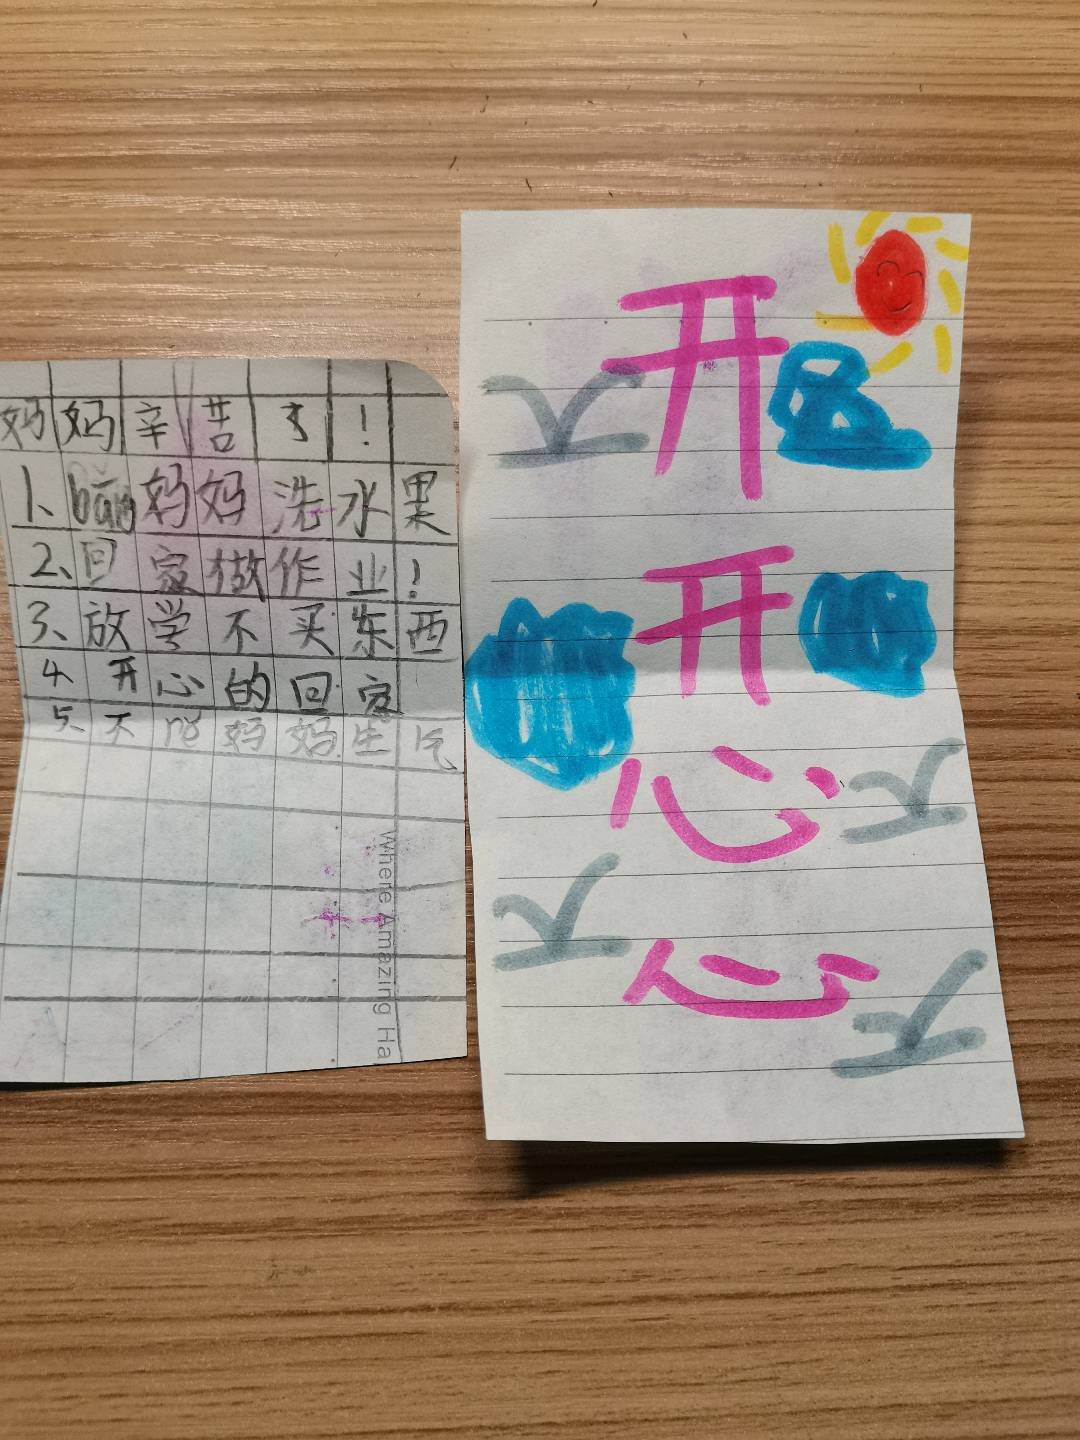 妈妈辛苦了!
1、bāng妈妈洗水果
2、回家做作业!
3、放学不买东西
4、开心的回家
5、不rě妈妈生气
Where Amazing Ha
开
开
心
心